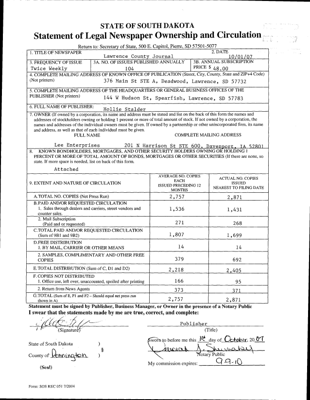 STATE OF SOUTH DAKOTA
Statement of Legal Newspaper Ownership and Circulation
Return to: Secretary of State, 500 E. Capitol, Pierre, SD 57501-5077
1. TITLE OF NEWSPAPER
Lawrence County Journal
2. DATE
10/01/07
3. FREQUENCY OF ISSUE
Twice Weekly
3A. NO. OF ISSUES PUBLISHED ANNUALLY
104
3B. ANNUAL SUBSCRIPTION
PRICE $ 48.00
4. COMPLETE MAILING ADDRESS OF KNOWN OFFICE OF PUBLICATION (Street, City, County, State and ZIP+4 Code)
(Not printers)
376 Main St STE A, Deadwood, SD 57732
5. COMPLETE MAILING ADDRESS OF THE HEADQUARTERS OR GENERAL BUSINESS OFFICES OF THE
PUBLISHER (Not printers)
144 W Hudson St. Spearfish, Lawrence, SD 57783
6. FULL NAME OF PUBLISHER:
Stalder
7. OWNER (If owned by a corporation, its name and address must be stated and list on the back of this form the names and
addresses of stockholders owning or holding 1 percent or more of total amount of stock. If not owned by a corporation, the
names and addresses of the individual owners must be given. If owned by a partnership or other unincorporated firm, its name
and address, as well as that of each individual must be given.
FULL NAME
COMPLETE MAILING ADDRESS
Lee Enterprises
201 N Harrison St STE 600, Davenport, IA 52801
8. KNOWN BONDHOLDERS, MORTGAGES, AND OTHER SECURITY HOLDERS OWNING OR HOLDING 1
PERCENT OR MORE OF TOTAL AMOUNT OF BONDS, MORTGAGES OR OTHER SECURITIES (If there are none, so
state. If more space is needed, list on back of this form
Attached
9. EXTENT AND NATURE OF CIRCULATION
AVERAGE NO. COPIES
EACH
ISSUED PRECEDING 12
MONTHS
ACTUAL NO. COPIES
ISSUED
NEAREST TO FILING DATE
A. TOTAL NO. COPIES (Net Press Run)
2,757
2,871
B. PAID AND/OR REQUESTED CIRCULATION
1. Sales through dealers and carriers, street vendors and
counter sales.
1,536
1,431
2. Mail Subscription
(Paid and or requested)
271
268
C. TOTAL PAID AND/OR REQUESTED CIRCULATION
(Sum of 9B1 and 9B2)
1,807
1,699
D. FREE DISTRIBUTION
1. BY MAIL, CARRIER OR OTHER MEANS
14
14
2. SAMPLES, COMPLIMENTARY AND OTHER FREE
COPIES
379
692
E. TOTAL DISTRIBUTION (Sum of C, D1 and D2)
2,218
2,405
F. COPIES NOT DISTRIBUTED
1. Office use, left over, unaccounted, spoiled after printing
166
95
2. Return from News Agents
373
371
G. TOTAL (Sum of E, F1 and F2 – Should equal net press run
shown in A)
2,757
2,871
Statement must be signed by Publisher, Business Manager, or Owner in the presence of a Notary Public
I swear that the statements made by me are true, correct, and complete:
(Signature)
Publisher
(Title)
State of South Dakota )
County of Pennington ) §
(Seal)
Sworn to before me this 1st day of October, 2007
Notary Public
My commission expires: 9-9-10